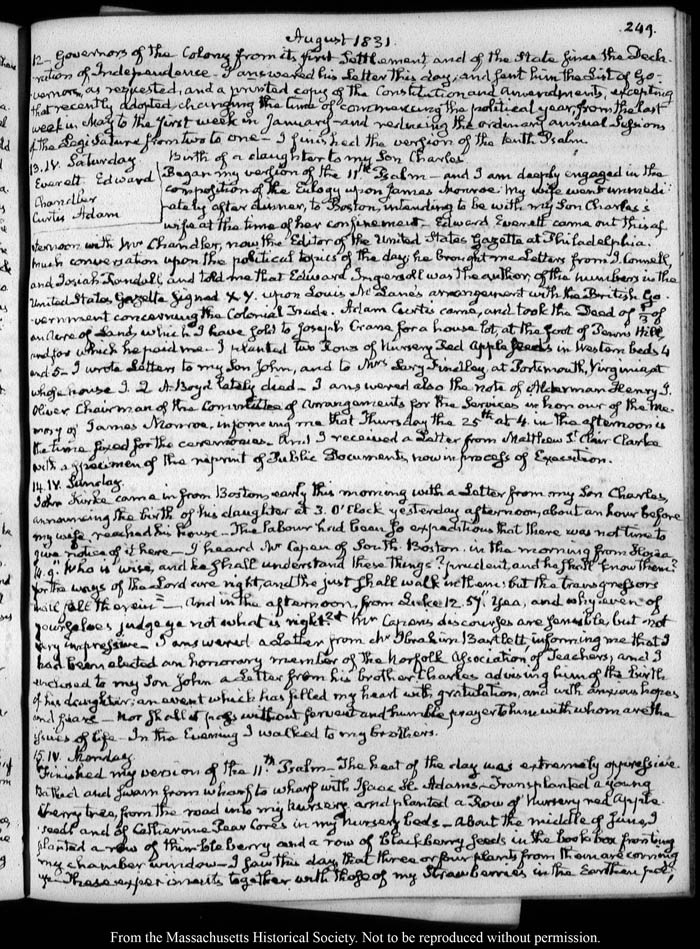 249.
August 1831.
12. Governors of the Colony from its first Settlement, and of the State since the Decla-
ration of Independence. I answered his Letter this day, and sent him the List of Go-
vernors, as requested, and a printed copy of the Constitution and amendments, excepting
that recently adopted changing the time of commencing the political year, from the last
week in May to the first week in January—and reducing the ordinary annual Sessions
of the Legislature from two to one—I finished the version of the tenth Psalm.
13. IV. Saturday Birth of a daughter to my Son Charles.
Everett Edward Began my version of the 11th Psalm—and I am deeply engaged in the
Chandler composition of the Eulogy upon James Monroe. My wife went immedi-
Curtis Adam ately after dinner, to Boston, intending to be with my Son Charles's
wife at the time of her confinement. Edward Everett came out this af-
ternoon with Mr Chandler, now the Editor of the United States Gazette at Philadelphia.
Much conversation upon the political topics of the day; he brought me Letters from J. Connell,
and Josiah Randall, and told me that Edward Ingersoll was the author, of the numbers in the
United States Gazette signed X Y. upon Louis McLane's arrangement with the British Go-
vernment concerning the Colonial Trade. Adam Curtis came, and took the Deed of of
an Acre of Land, which I have sold to Joseph Crane for a house lot, at the foot of Penns Hill,
and for which he paid me. I planted two Rows of Nursery Red Apple seeds in Western beds 4
and 5—I wrote Letters to my Son John, and to Mrs Lucy Findlay, at Portsmouth, Virginia, at
whose house J. Q. A. Boyd lately died—I answered also the note of Alderman Henry J.
Oliver Chairman of the Committee of arrangements for the Services in honour of the Me-
mory of James Monroe, informing me that Thursday the 25th at 4. in the afternoon is
the time fixed for the ceremonies. And I received a Letter from Matthew St Clair Clarke
with a specimen of the reprint of Public Documents, now in process of Execution.
14. IV. Sunday.
John Kirke came in from Boston, early this morning with a Letter from my Son Charles,
announcing the birth of his daughter at 3. O'Clock yesterday afternoon, about an hour before
my wife reached his house—The labour had been so expeditious that there was not time to
give notice of it here—I heard Mr Capen of South Boston. in the morning from Hosea
14. 9. "Who is wise, and he shall understand these things? prudent, and he shall know them?
for the ways of the Lord are right, and the just shall walk in them: but the transgressors
shall fall therein"—And in the afternoon, from Luke 12. 57. "Yea, and why even of
yourselves judge ye not what is right?" Mr Capen's discourses are sensible, but not
very impressive—I answered a Letter from Mr Ibrahim Bartlett, informing me that I
had been elected an honorary member of the Norfolk Association of Teachers, and I
enclosed to my Son John a Letter from his brother Charles advising him of the birth
of his daughter; an event which has filled my heart with gratulation, and with anxious hopes
and fears—nor shall it pass without fervent and humble prayer to him with whom are the
issues of life—In the Evening I walked to my brothers.
15. IV. Monday.
Finished my version of the 11th Psalm—The heat of the day was extremely oppressive.
Bathed and swam from wharf to wharf with Isaac H. Adams—Transplanted a young
Cherry tree, from the road into my nursery and planted a Row of Nursery red Apple
seeds and St Catherine Pear Cores in my nursery beds—About the middle of June, I
planted a row of thimbleberry and a row of blackberry seeds in the book box fronting
my chamber window—I saw this day that three or four plants from them are coming
up—These experiments together with those of my Strawberries in the Earthen pots,
From the Massachusetts Historical Society. Not to be reproduced without permission.